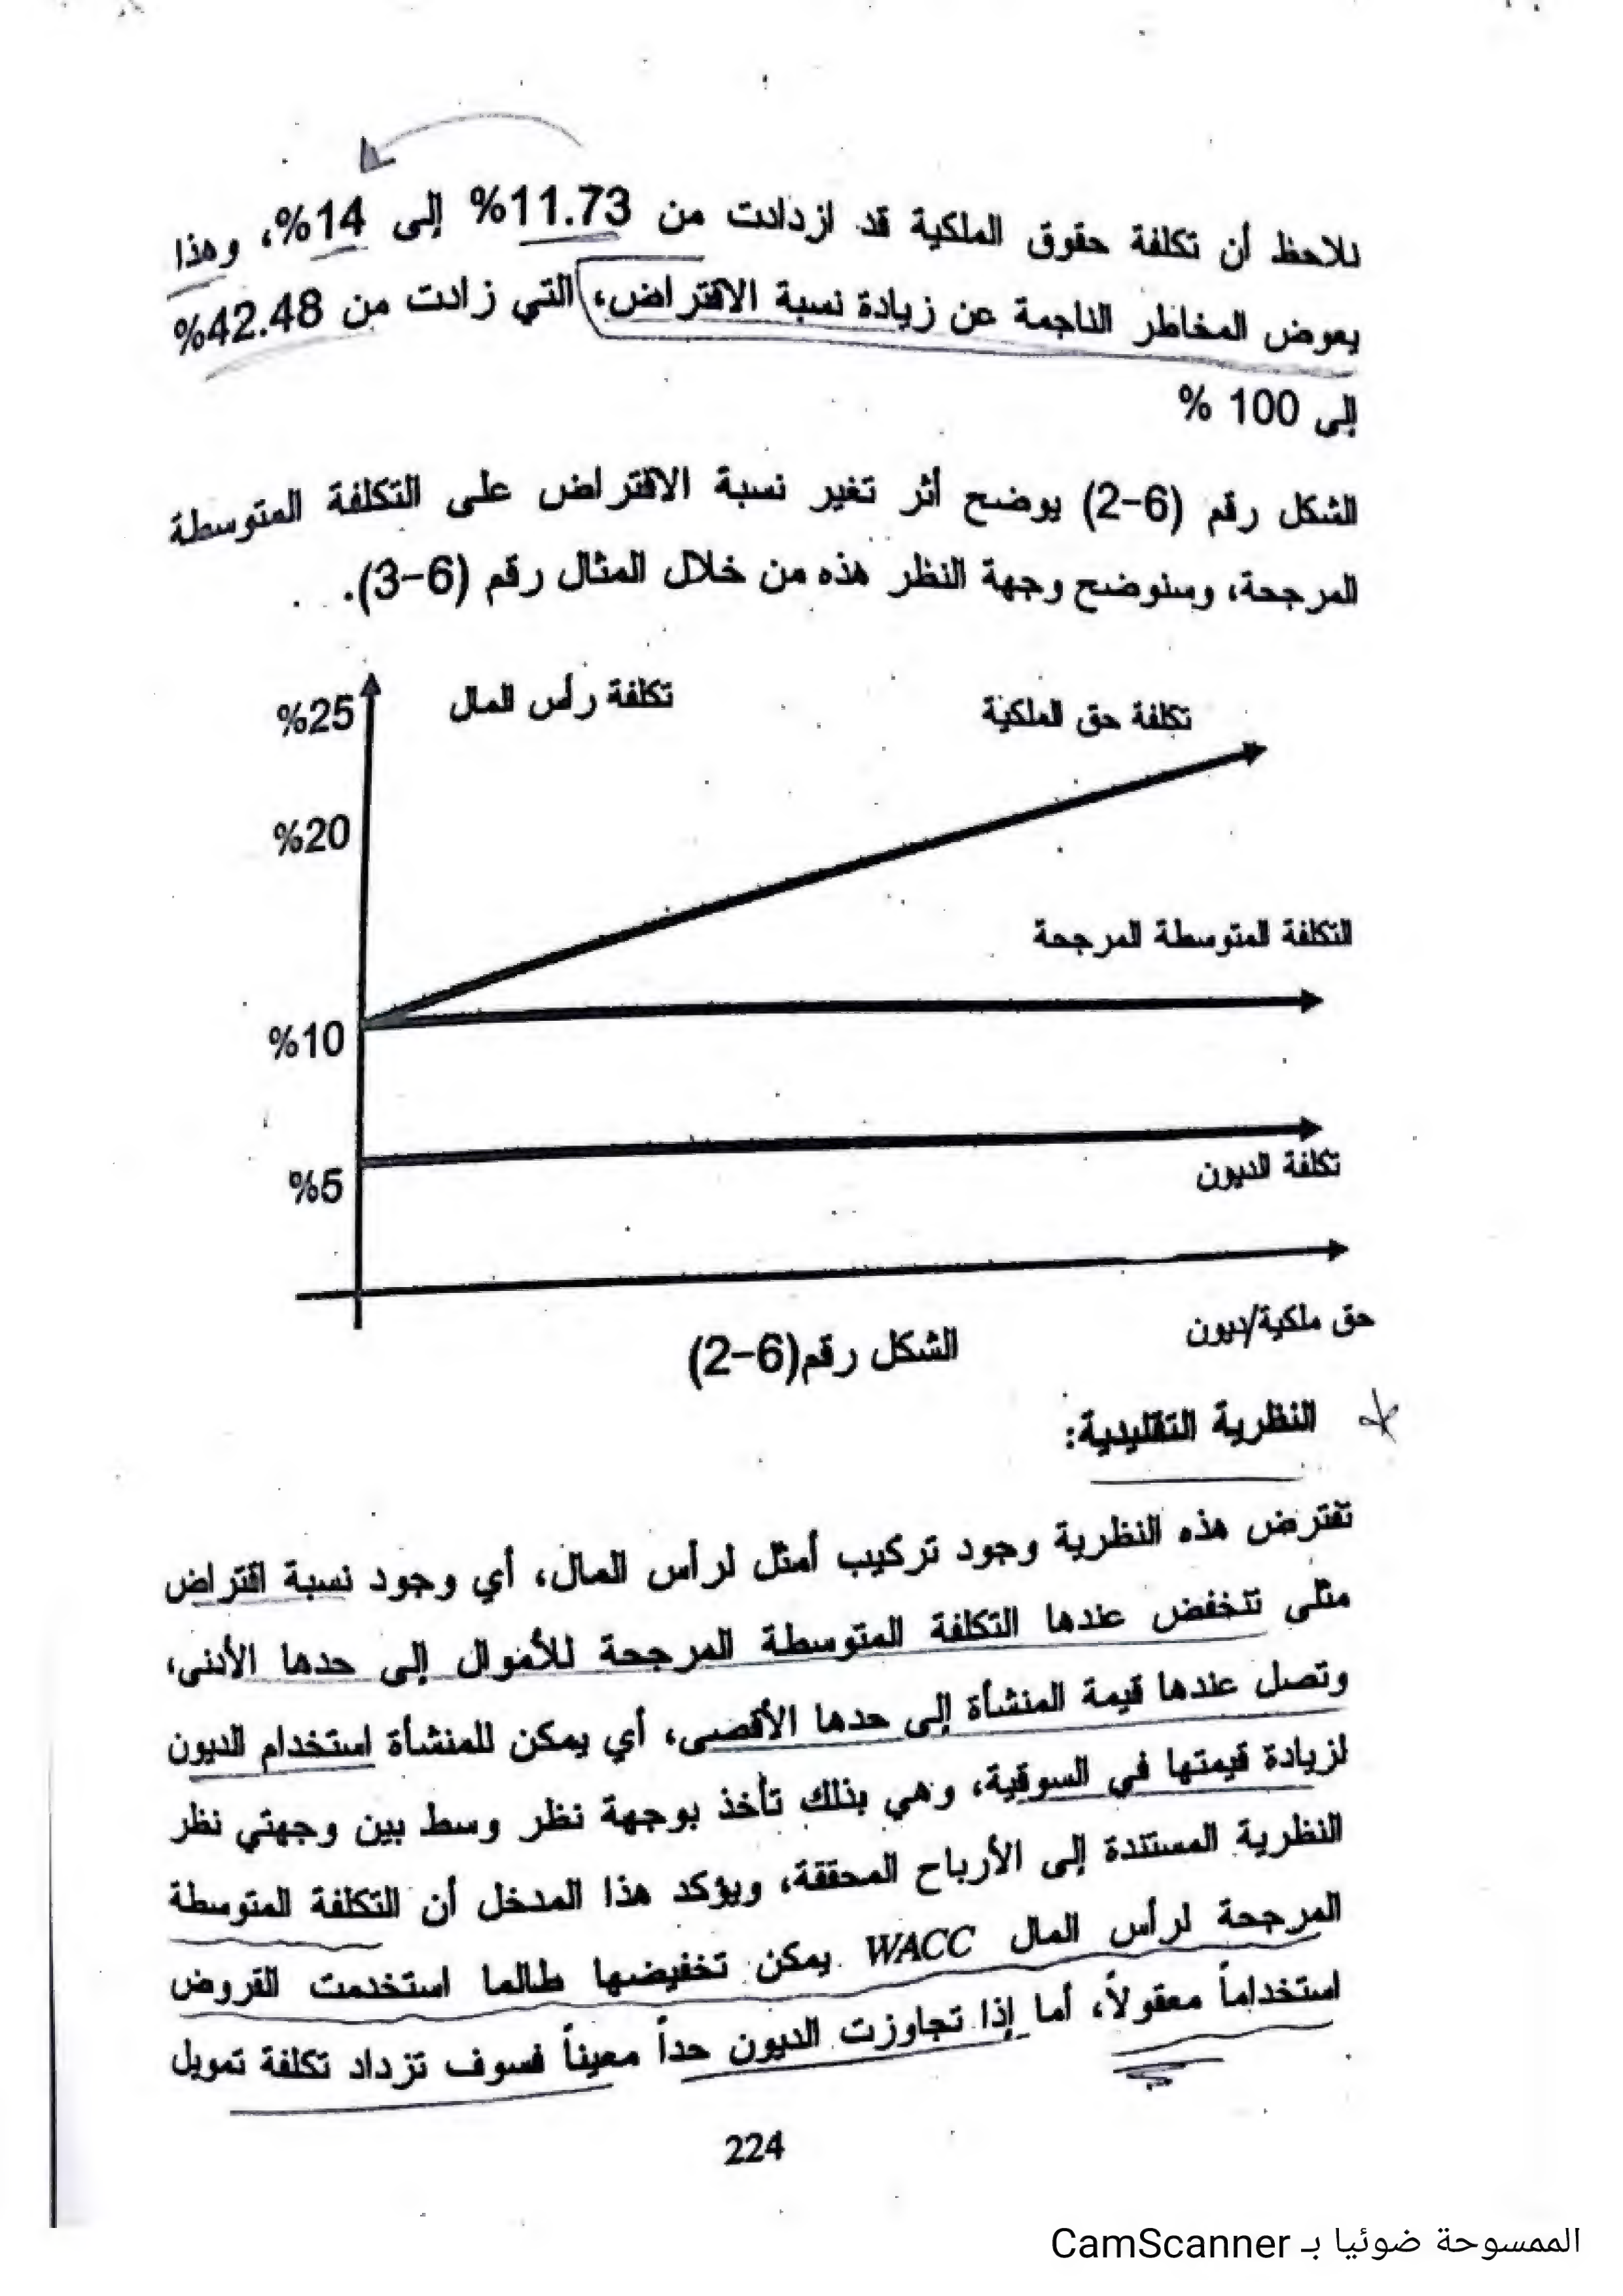 نلاحظ أن تكلفة حقوق الملكية قد ازدادت من 11.73% إلى 14%، وهذا
يعوض المخاطر الناجمة عن زيادة نسبة الاقتراض، التي زادت من 42.48%
إلى 100 %
الشكل رقم (6-2) يوضح أثر تغير نسبة الاقتراض على التكلفة المتوسطة
المرجحة، وسنوضح وجهة النظر هذه من خلال المثال رقم (6-3).
%25
تكلفة رأس المال
تكلفة حق الملكية
%20
التكلفة المتوسطة المرجحة
%10
%5
تكلفة الديون
حق ملكية/ديون
الشكل رقم(6-2)
النظرية التقليدية:
تفترض هذه النظرية وجود تركيب أمثل لرأس المال، أي وجود نسبة اقتراض
مثلى تنخفض عندها التكلفة المتوسطة المرجحة للأموال إلى حدها الأدنى،
وتصل عندها قيمة المنشأة إلى حدها الأقصى، أي يمكن للمنشأة استخدام الديون
لزيادة قيمتها في السوقية، وهي بذلك تأخذ بوجهة نظر وسط بين وجهتي نظر
النظرية المستندة إلى الأرباح المحققة، ويؤكد هذا المدخل أن التكلفة المتوسطة
المرجحة لرأس المال WACC يمكن تخفيضها طالما استخدمت القروض
استخداماً معقولاً، أما إذا تجاوزت الديون حداً معيناً فسوف تزداد تكلفة تمويل
224
الممسوحة ضوئيا بـ CamScanner